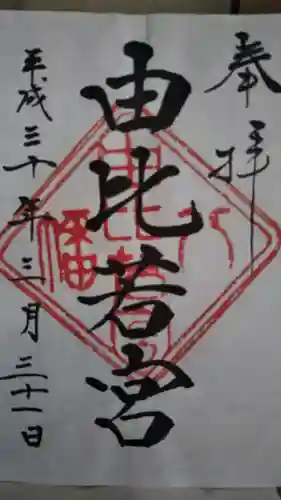 奉拝
由比若宮
平成三十年三月三十一日